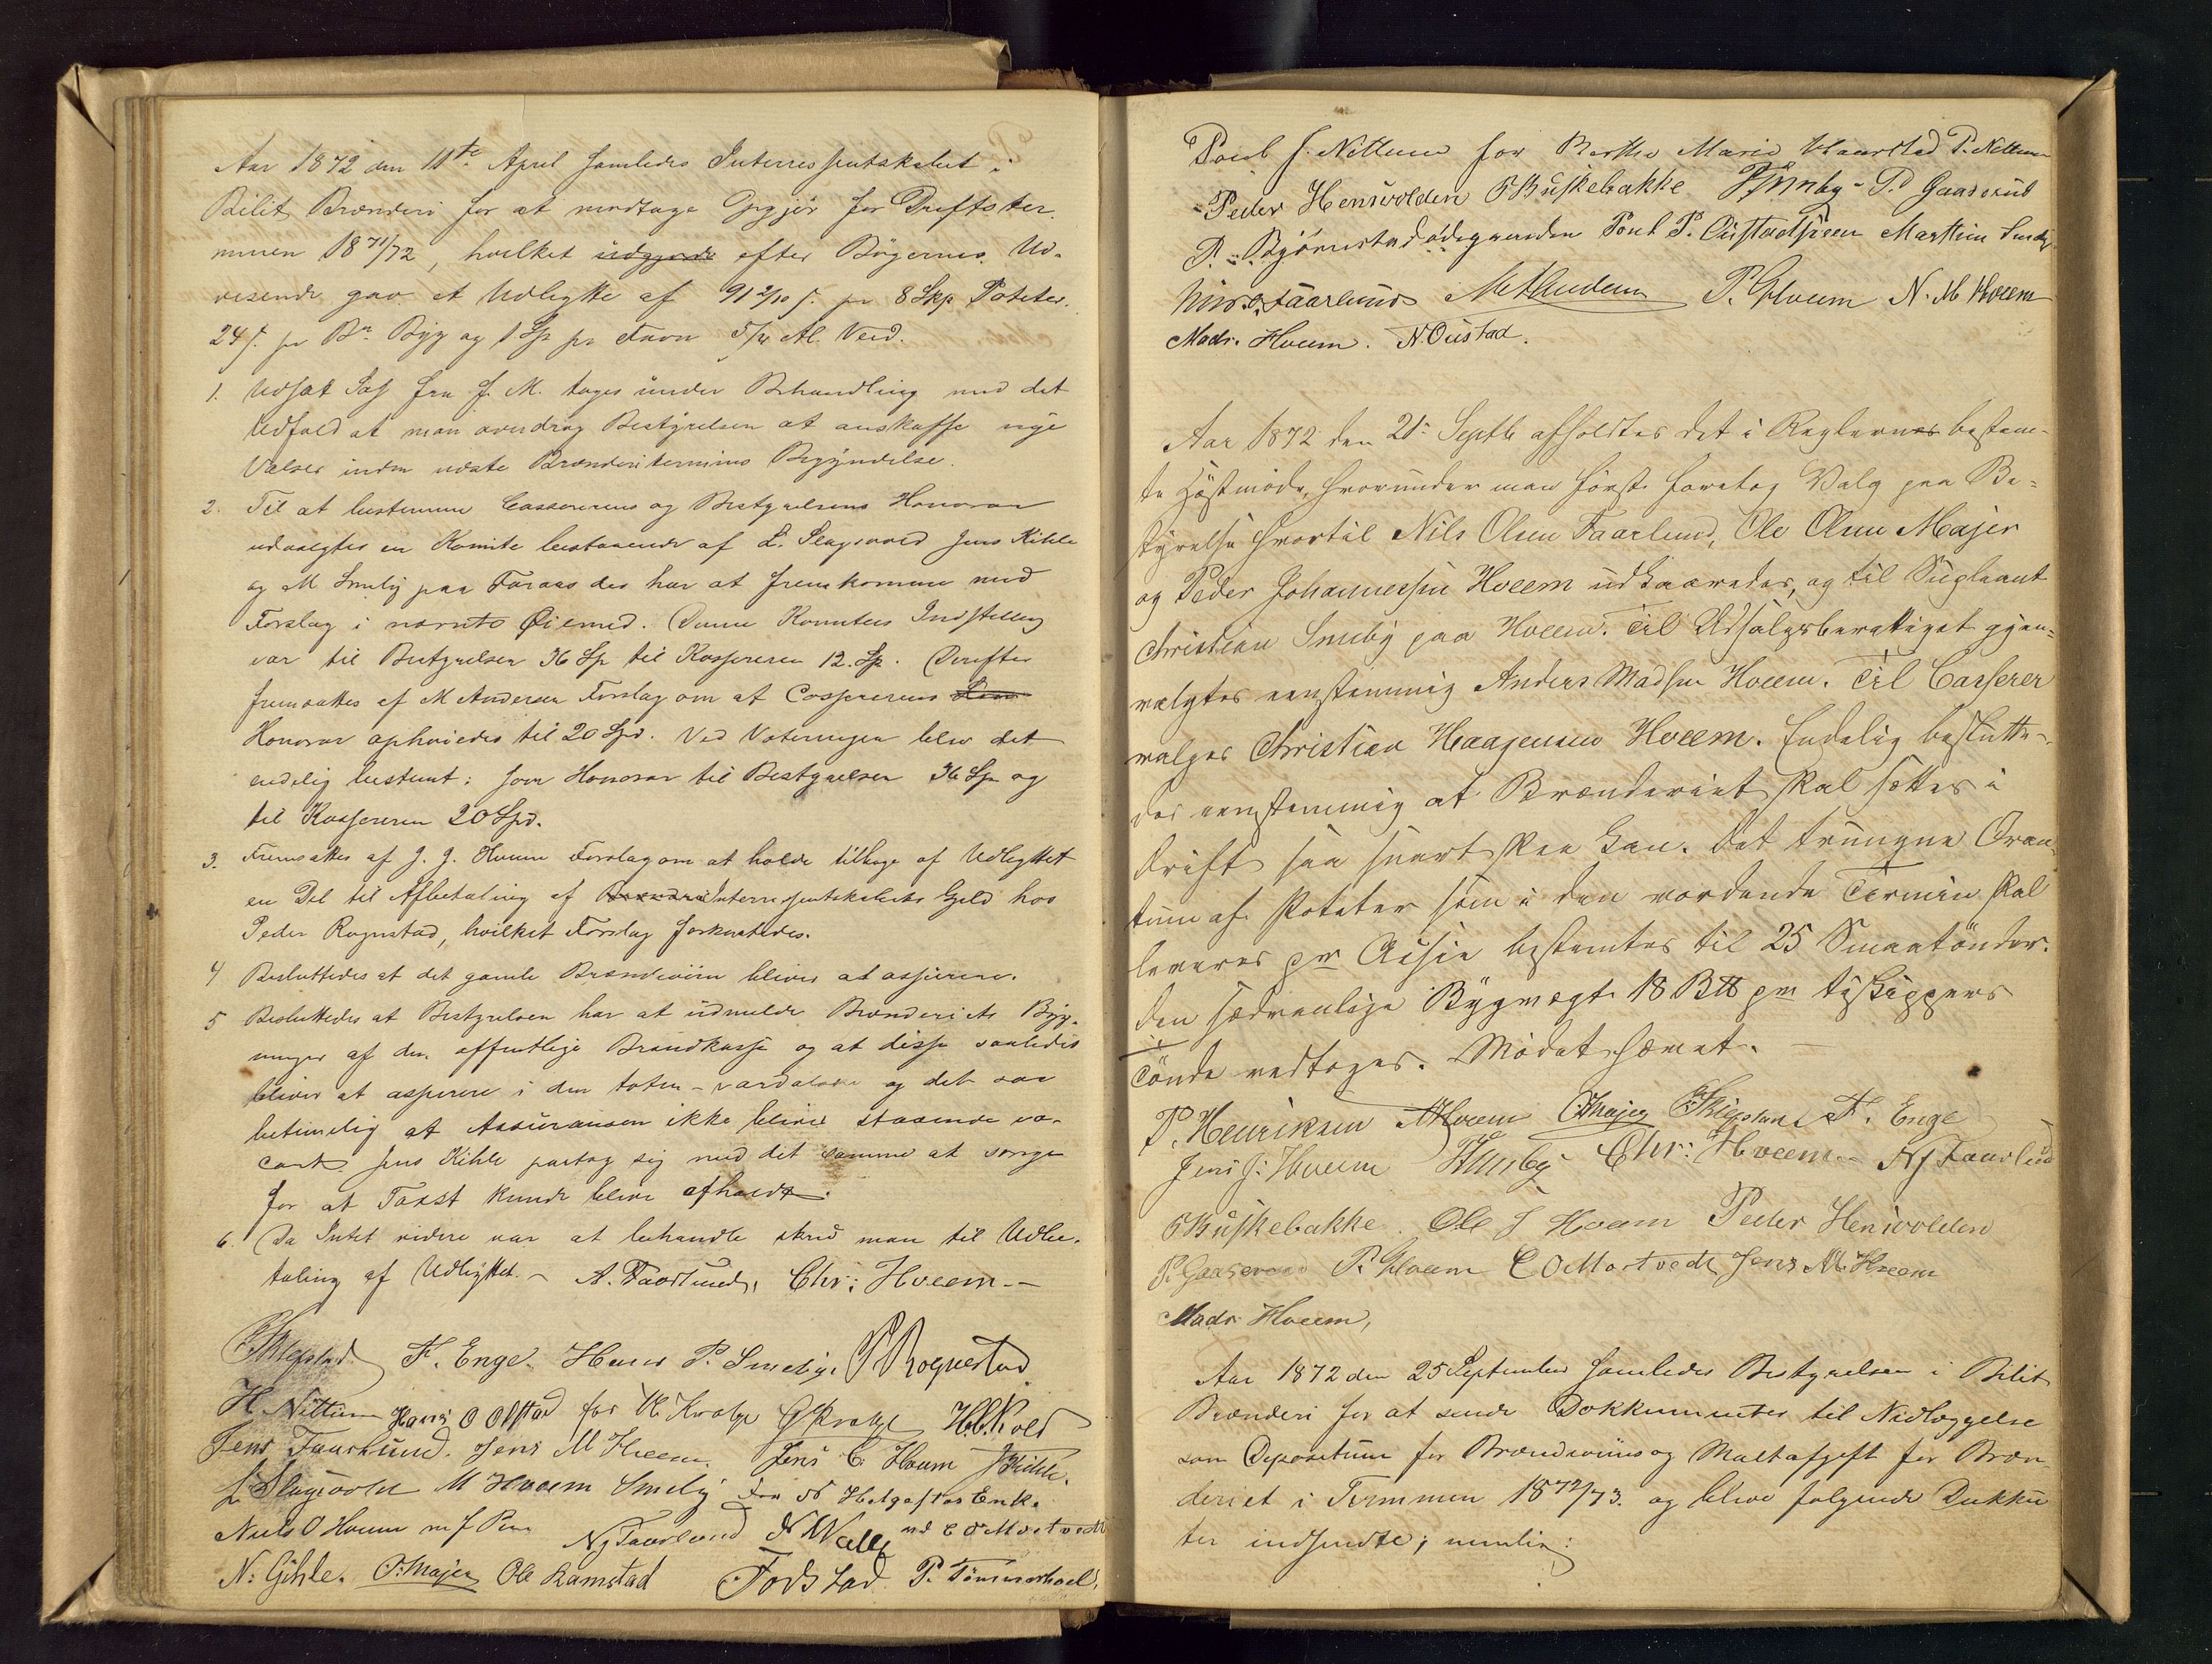 Aar 1872 den 11te April samledes Interressentskabet i
Bilit Brænderi for at modtage Opgjör for Driftster-
minen 1871/72, hvilket udgjorde efter Bögernes Ud-
visende gav et Udbytte af 91 2/10 s. pr 8 Skp Poteter.
24 s. pr Bn Byg og 1 Sp pr Favn 5/4 Al. Ved.
1. Udsat Sag fra f. M. toges under Behandling med det
Udfald at man overdrog Bestyrelsen at anskaffe nye
Valser inden næste Brænderitermins Begyndelse.
2. Til at bestemme Cassererens og Bestyrelsens Honorar
udvalgtes en Komite bestaaende af L. Slagsvold Jens Kihle
og M Smeby paa Faraas der har at fremkomme med
Forslag i nævnte Øiemed. Denne Komitees Indstilling
var til Bestyrelsen 36 Sp til Kassereren 12. Sp. Derefter
fremsattes af M Andersen Forslag om at Cassererens
Honorar ophöiedes til 20 Spd. Ved Voteringen blev det
endelig bestemt: som Honorar til Bestyrelsen 36 Sp og
til Kassereren 20 Spd.
3. Fremsattes af J. J. Hveem Forslag om at holde tilbage af Udbyttet
en Del til Afbetaling af Interressentskabets Gjeld hos
Peder Rognstad, hvilket Forslag forkastedes.
4 Besluttedes at det gamle Brændeviin bliver at assurere.
5 Besluttedes at Bestyrelsen har at udmelde Brænderiets Byg-
ninger af den offentlige Brandkasse og at disse saaledes
bliver at assurere i den toten-vardalske og det saa
betimelig at Assuransen ikke bliver staaende va-
cant. Jens Kihle paatog sig med det samme at sörge
for at Taxst kunde blive afholdt.
6. Da Intet videre var at behandle skred man til Udbe-
taling af Udbyttet. – A. Faarlund, Chr: Hveem –
F. Enge. Hans P. Smeby. P Rognestad
H. Nettum Hans O Olstad for M. Kvalge G Kralge H.C. Kold
Jens Faarlund. Jens M Hveem. Jens C. Hveem J Kihle.
L Slagsvold M Hveem Smeby for N Helgestes Enke
Niels O Hveem NJ Faarlund N Valle ved E O Mostvedt
N. Gihle. O. Majer Ole Ramstad Fodstad P. Tömmerhoel,
Poul J. Nettum for Berthe Marie Haarstad P. Nettum
Peder Henivolden O Buskebakke P. Gaaserud
P. Bjørnstadödegaarden Poul P. Martin Smeby
Nils O. Faarlund M Andersen P. Hveem N. M Hveem
Mads. Hveem. N. Oustad.
Aar 1872 den 21de Septb afholdtes det i Reglerne bestem-
te Höstmöde, hvorunder man först foretog Valg paa Be-
styrelse hvortil Nils Olsen Faarlund, Ole Olsen Majer
og Peder Johannessen Hveem udkaaredes, og til Supleant
Christian Smeby paa Hveem. Til Udsalgsberettiget gjen-
valgtes eenstemmig Anders Madsen Hveem. Til Casserer
valges Christian Haagensen Hveem. Endelig beslutte-
des eenstemmig at Brænderiet skal sættes i
drift saa snart skee kan. Det tvungne Qvan-
tum af Poteter som i den vordende Termin skal
leveres pr Actie bestemtes til 25 Smaatönder.
Den sædvanlige Bygvægt 18 B℔ pr tiskippers
Tönde vedtoges. Mödet hævet. –
P. Henriksen AHveem OMajer F. Enge
Jens J. Hveem Smeby Chr: Hveem. NJ Faarlund
O Buskebakke. Ole J Hveem Peder Henivolden
P. Gaaserud P. Hveem E O Mostvedt Jens M. Hveem
Mads Hveem,
Aar 1872 den 25 September samledes Bestyrelsen i Bilit
Brænderi for at sende Dokkumenter til Nedlæggelse
som Depositum for Brændeviins og Maltafgift for Bræn
deriet i Terminen 1872/73. og bleve fölgende Dukku
ter indsendte; nemlig: